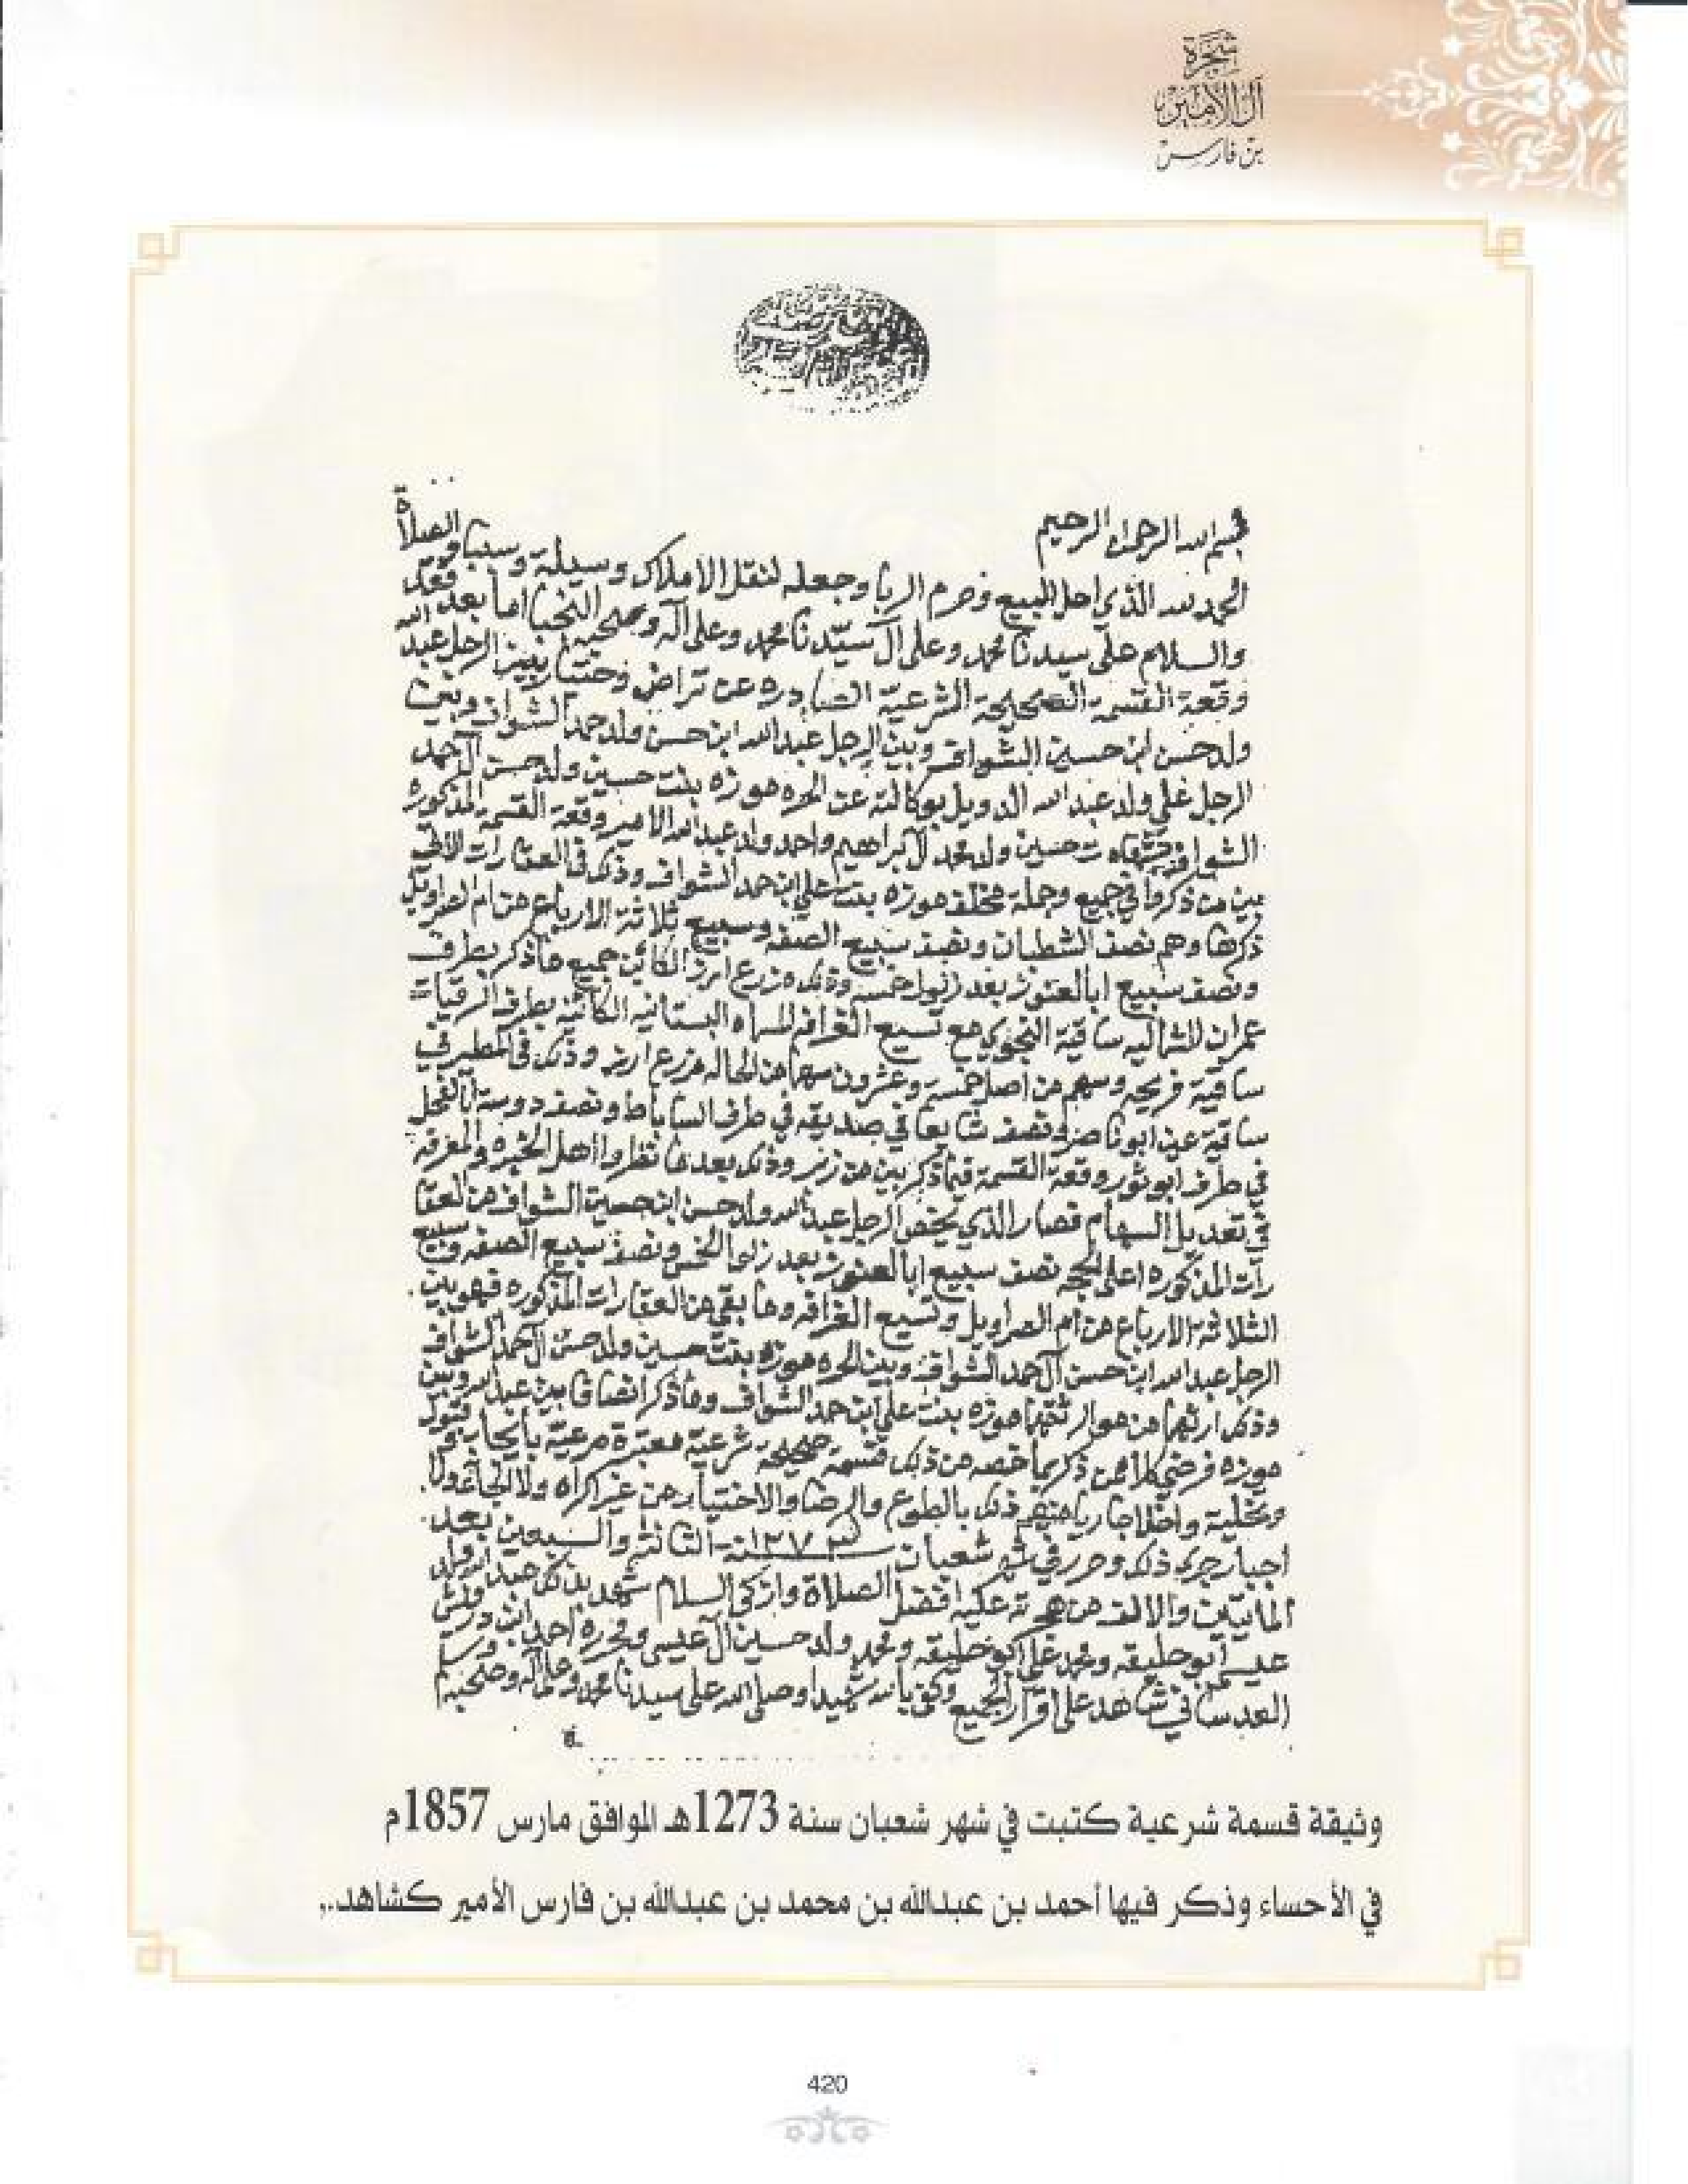 شجرة
آل الأمير
بن فارس
بسم الله الرحمن الرحيم
الحمد لله الذي احل البيع وحرم الربا وجعله لنقل الاملاك وسيلة وسببا والصلاة
والسلام على سيدنا محمد وعلى آل سيدنا محمد وعلى آله وصحبه النخبا اما بعد فقد
وقعة القسمة الصحيحة الشرعية الصادره عن تراض وختيار بين الرجل عبد الله
ولد حسن ابن حسين الشواف وبين الرجل عبد الله ابن حسن ولد حمد الشواف وبين
الرجل علي ولد عبد الله الدويل بوكالته عن الحره موزه بنت حسين ولد حسن آل حمد
الشواف حسين ولد محمد آل براهيم واحمد ولد عبد الله الامير وقعة القسمة المذكوره
بين من ذكروا في جميع وجملة مخلف موزه بنت علي ابن حمد الشواف وذلك في العقارات الاتي
ذكرها وهم نصف الشطبان ونصف سبيع الصنفه وسبيع ثلاثة الارباع من ام الصراويل
ونصف سبيع ابالعنوز بعد خمسه وذلك مزرع ارز الكائن جميع ما ذكر بطرف
عمران الشماليه ساقية النجوي مع تسيع الغرافه المساه البستانيه الكائنه بطرف الرقيات
ساقية فريحه وسهم من اصل خمسة وعشرون سهما من الحاله مزرع ارز وذلك في المطيرفي
ساقية عين ابو ناصر ونصف شايعا في صديقه في طرف الساباط ونصف دوسة الفحل
في طرف ابو ثور وقعة القسمة فيما ذكر بين من زبر وذلك بعد ما نظروا اهل الخبره والمعرفه
في تعديل السهام فصار الذي يخص الرجل عبد الله ولد حسن ابن حسين الشواف من العقا
رات المذكوره اعلى الحجه نصف سبيع ابا العنوز بعد الخمس ونصف سبيع الصنفه وسبيع
الثلاثة الارباع من ام الصراويل وتسيع الغرافه وما بقي من العقارات المذكوره فهو بين
الرجل عبد الله ابن حسن آل حمد الشواف وبين الحره موزه بنت حسين ولد حسن آل حمد الشواف
وذلك ارثهما من موزه بنت علي ابن حمد الشواف وما ذكر انصافا بين عبد الله وبين
موزه فرضي كلا ممن ذكر بما خصه من ذلك قسمة صحيحة شرعية معتبرة مرعية بايجاب وقبول
وتخلية جاريا منهم ذلك بالطوع والرضا والاختيار من غير اكراه ولا الجا ولا
اجبار جرى ذلك وحرر في شهر شعبان سنة ١٢٧٣ الثالثه والسبعين بعد
المايتين والالف من هجرته عليه افضل الصلاة وازكى السلام شهد بذلك عبد الله ولد
عيسى أبو خليفه ومحمد علي أبو خليفه ومحمد ولد حسين آل عيسى ومحرره احمد ابن درويش
العدساني شاهد على اقرار الجميع وكفى بالله شهيدا وصلى الله على سيدنا محمد وعلى آله وصحبه وسلم
وثيقة قسمة شرعية كتبت في شهر شعبان سنة 1273هـ الموافق مارس 1857م
في الأحساء وذكر فيها أحمد بن عبدالله بن محمد بن عبدالله بن فارس الأمير كشاهد..
420